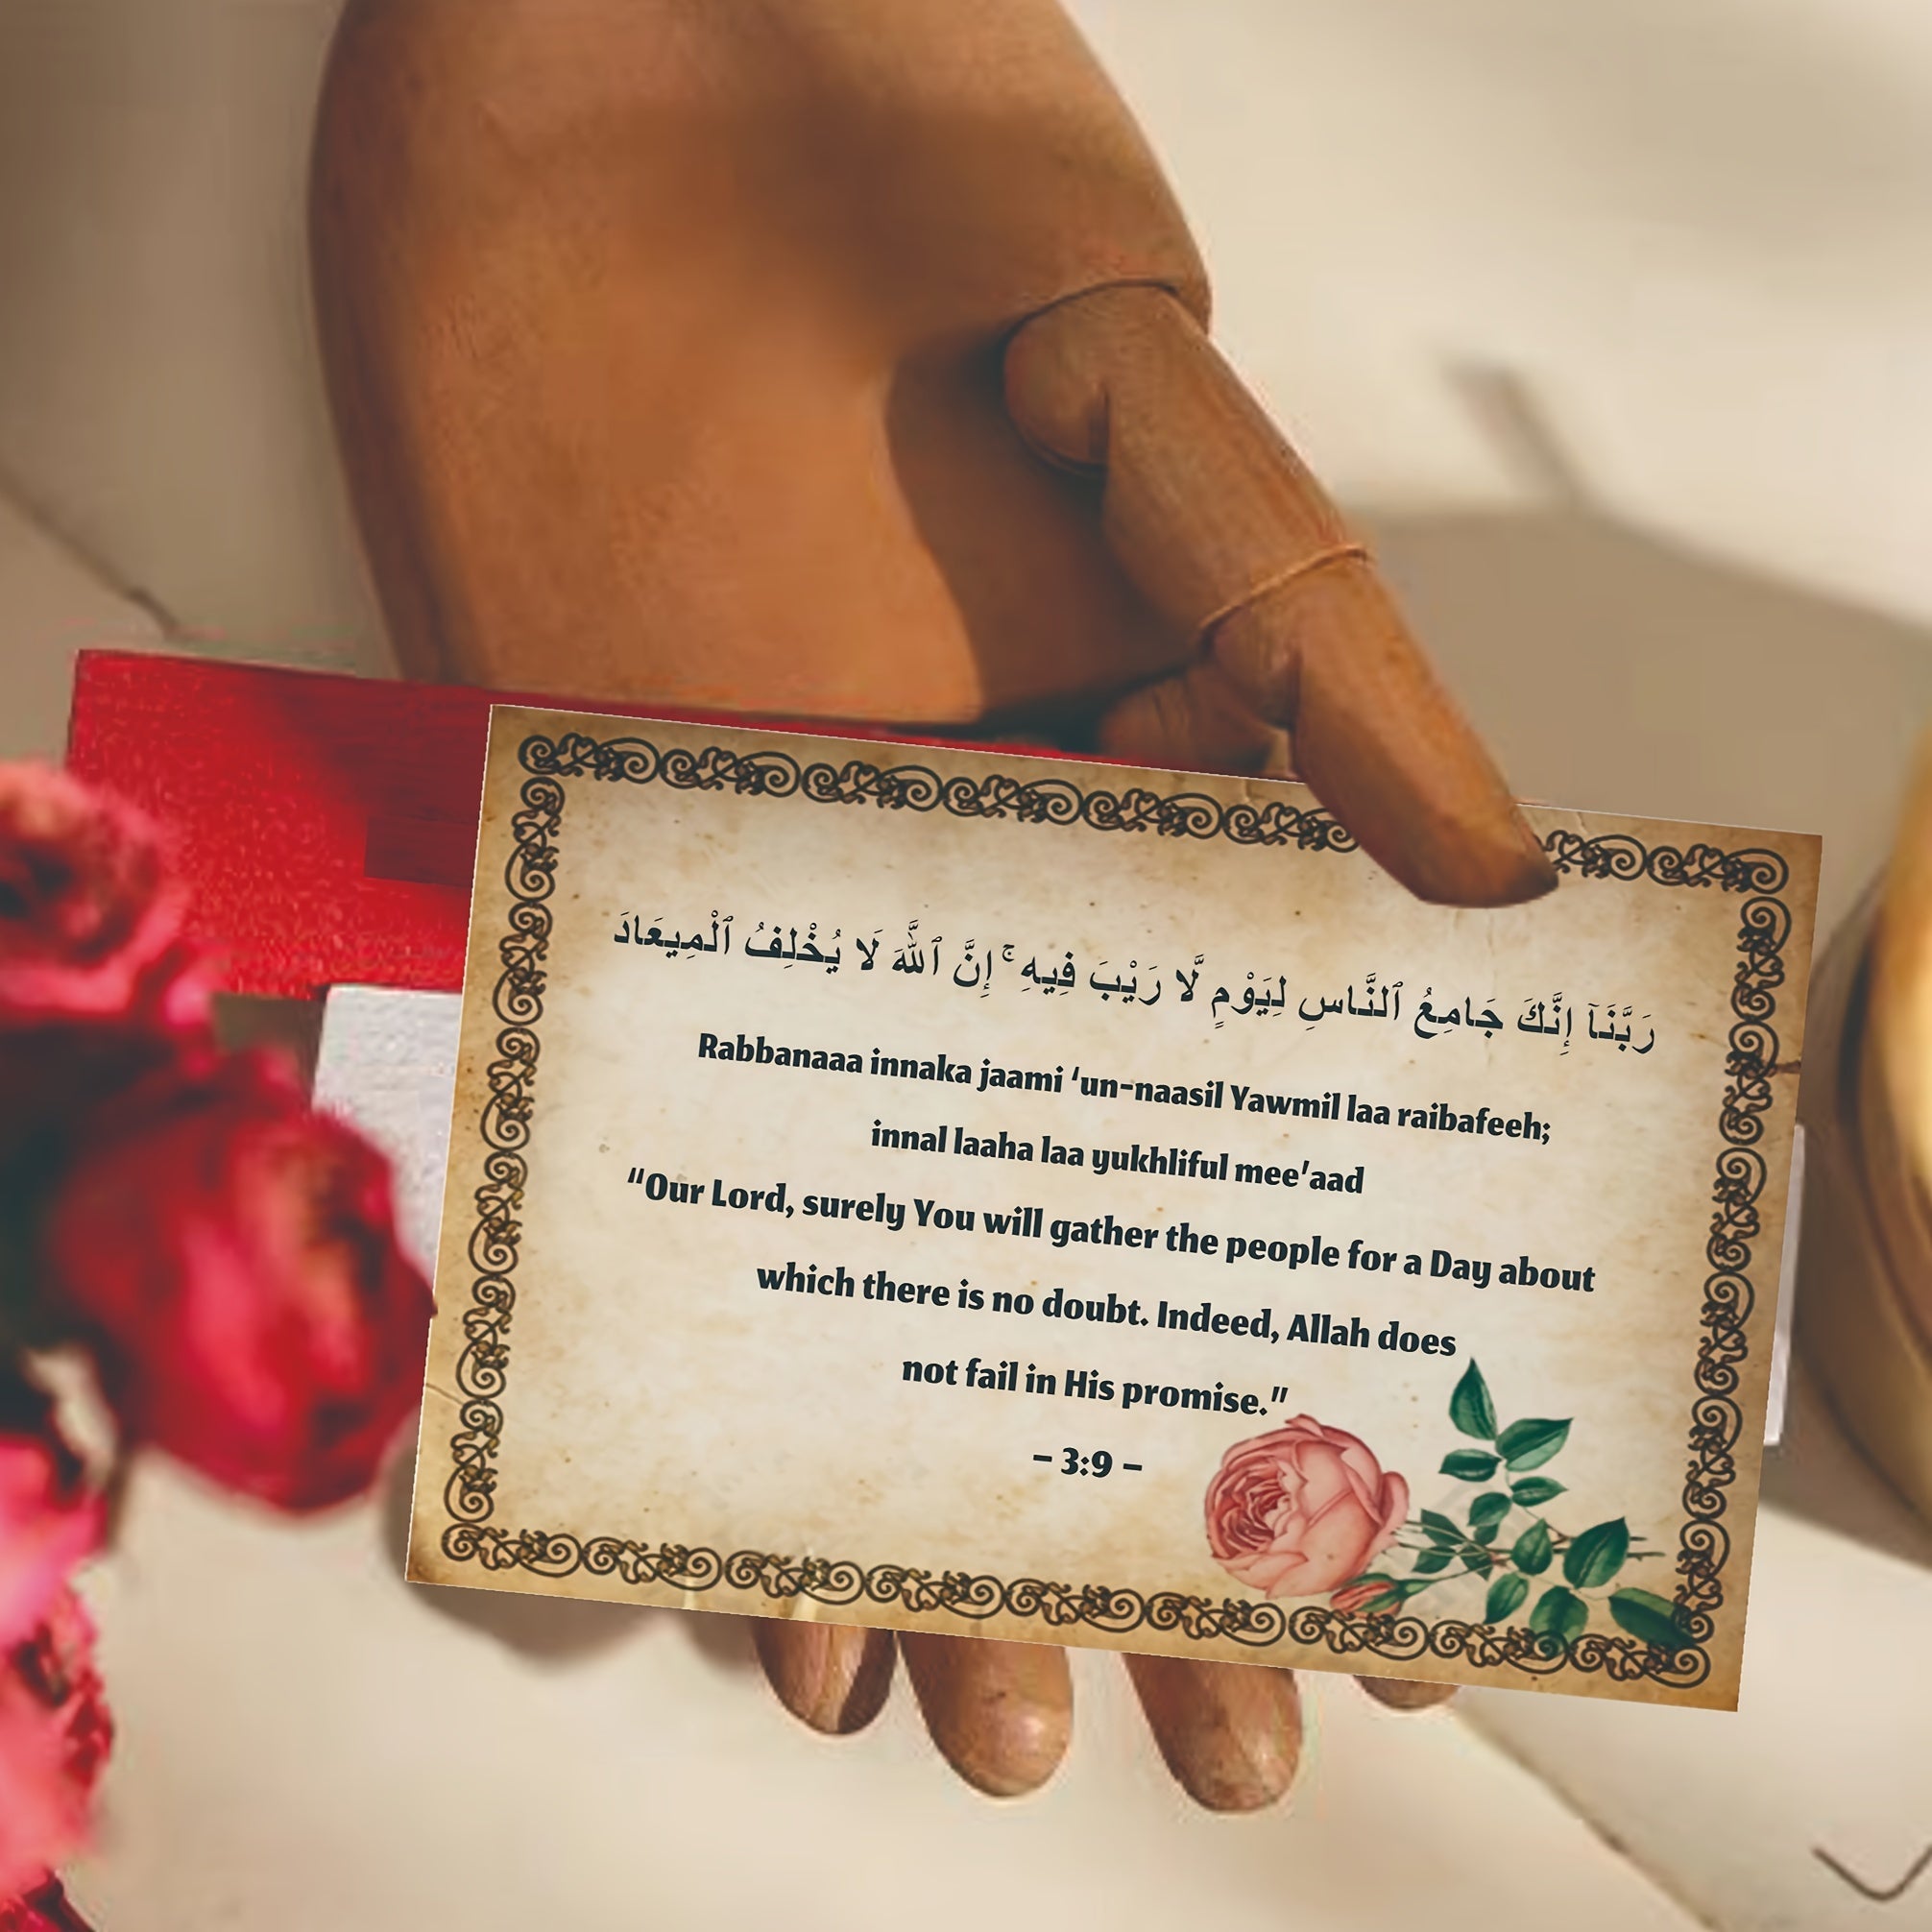 رَبَّنَآ إِنَّكَ جَامِعُ ٱلنَّاسِ لِيَوْمٍ لَّا رَيْبَ فِيهِ ۚ إِنَّ ٱللَّهَ لَا يُخْلِفُ ٱلْمِيعَادَ
Rabbanaaa innaka jaami ‘un-naasil Yawmil laa raibafeeh;
innal laaha laa yukhliful mee’aad
“Our Lord, surely You will gather the people for a Day about
which there is no doubt. Indeed, Allah does
not fail in His promise.”
– 3:9 –